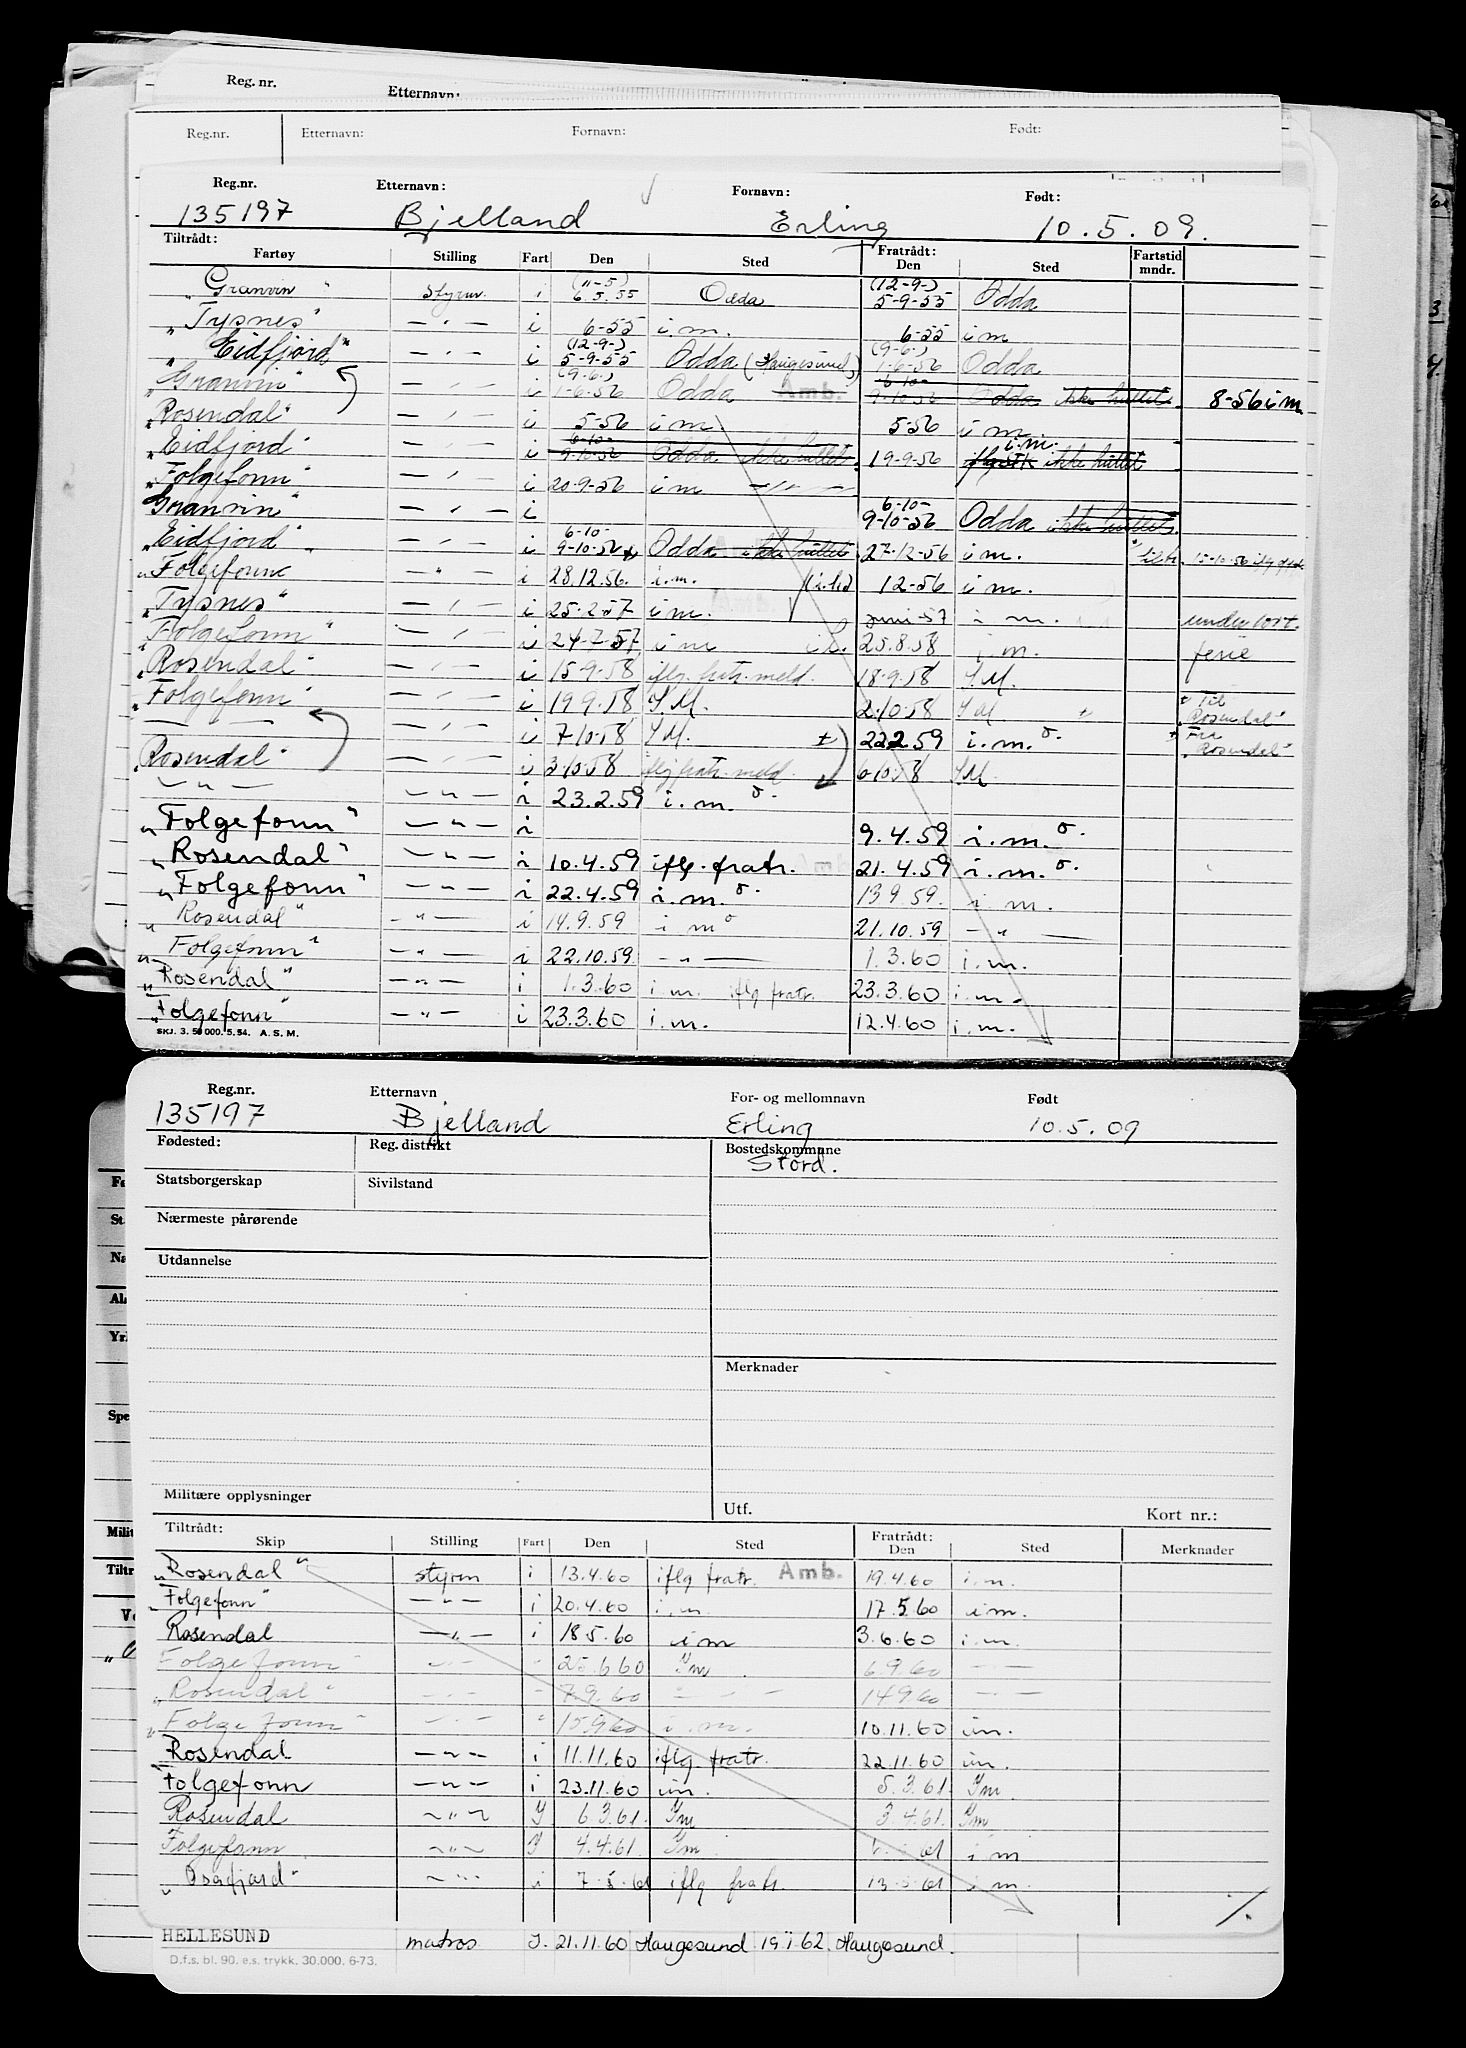 Reg. nr. Etternavn:
Reg.nr. Etternavn: Fornavn: Født:
Reg.nr. Etternavn: Fornavn: Født:
135197 Bjelland Erling 10.5.09.
Tiltrådt: Fratrådt:
Fartøy Stilling Fart Den Sted Den Sted Fartstid mndr.
(11-5) (12-9-)
"Granvin" styrm. i 6.5.55 Odda 5-9-55 Odda
"Tysnes" — " — i 6-55 i m. 6-55 i m
(12-9-) (9-6-)
"Eidfjord" — " — i 5-9-55 Odda (Haugesund) 1-6-56 Odda
(9.6.) 6-10-
"Granvin" — " — i 1-6-56 Odda Amb. 9-10-56 Odda ikke huttet. 8-56 i m
"Rosendal" — " — i 5-56 i m 5-56 i m
6-10- i.m.
"Eidfjord" — " — i 9-10-56 Odda ikke huttet. 19-9-56 ikke huttet
"Folgefonn" — " — i 20-9-56 i m — " —
6-10-
"Granvin" — " — i 9-10-56 Odda ikke huttet.
6-10-
"Eidfjord" — " — i 9-10-56 Odda ikke huttet 27-12-56 i m. 15-10-56
"Folgefonn — " — i 28.12.56. i.m. 12-56 i m.
"Tysnes" — " — i 25-2-57 i m. Amb. juni-57 i m. under tort.
"Folgefonn" — " — i 24-7-57 i m 25.8.58 i.m. ferie
"Rosendal" — " — i 15-9-58 iflg. fratr. meld. 18-9-58 I M.
"Folgefonn" — " — i 19 9.58 I.M. 2-10-58 I M ± ± Til "Rosendal"
— — — " — i 7-10-58 I M. ± 22.2.59 i.m. ± Fra "Rosendal"
"Rosendal" — " — i 3-10-58 iflg fratr. meld. 6-10-58 I M
— " — — " — i 23.2.59 i.m.
"Folgefonn" — " — i 9.4.59 i.m.
"Rosendal" — " — i 10.4.59 iflg. fratr. Amb. 21.4.59 i.m.
"Folgefonn" — " — i 22.4.59 i.m. 13 9.59. i m.
"Rosendal" — " — i 14.9.59 i m 21.10.59 — " —
"Folgefonn" — " — i 22.10.59. — " — 1.3.60 i.m.
"Rosendal" — " — i 1.3.60 i.m. iflg fratr. 23.3.60 i.m.
"Folgefonn" — " — i 23.3.60 i.m. 12.4.60 i.m.
SKJ. 3. 50 000. 5.54. A. S. M.
Reg.nr. Etternavn For- og mellomnavn Født
135197 Bjelland Erling 10.5.09
Fødested: Reg. distrikt Bostedskommune
Stord.
Statsborgerskap Sivilstand
Nærmeste pårørende
Utdannelse
Merknader
Militære opplysninger Utf. Kort nr.:
Tiltrådt: Fratrådt:
Skip Stilling Fart Den Sted Den Sted Merknader
"Rosendal" styrm i 13.4.60 iflg fratr. Amb. 19.4.60 i.m.
"Folgefonn" — " — i 20.4.60 i.m 17.5.60 i m.
Rosendal — " — i 18.5.60 i m 3.6.60 i.m.
Folgefonn — " — " 25.6.60 Im 6.9.60 — —
"Rosendal" — " — " 7.9.60 — " — 14 9 60 — —
"Folgefonn" — " — " 15.9.60 i.m. 10.11.60 im.
Rosendal — " — i 11.11.60 iflg. fratr. 22.11.60 im
"Folgefonn — " — i 23.11.60 im. 5.3.61 Im
Rosendal — " — I 6.3.61. Im 3.4.61. Im
Folgefonn — " — I 4.4.61. Im 61 i m
"Osafjord" — " — i iflg fratr. i m.
%
HELLESUND matros I. 21.11.60 Haugesund 19 1 62 Haugesund.
D.f.s. bl. 90. e.s. trykk. 30.000. 6-73.